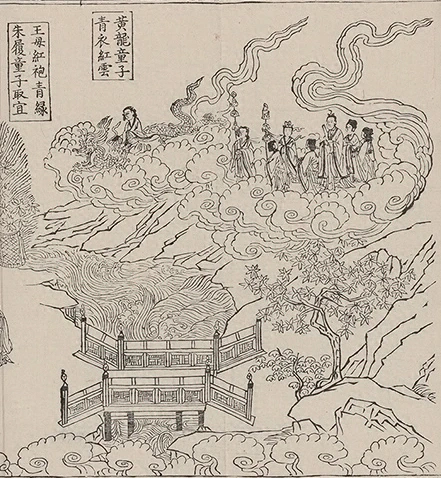 黃龍童子
青衣紅雲
王母紅袍青緑
朱履童子取宜